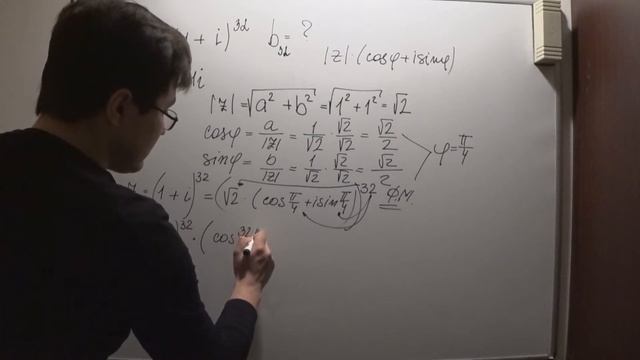 + i)³² b₃₂ = ?
|z|·(cosφ+isinφ)
i
|z| = √(a² + b²) = √(1² + 1²) = √2
cosφ = a/|z| = 1/√2 · √2/√2 = √2/2
sinφ = b/|z| = 1/√2 · √2/√2 = √2/2
φ = π/4
z = (1 + i)³² = (√2 · (cos π/4 + isin π/4))³² Ф.М.
)³² · (cos 32